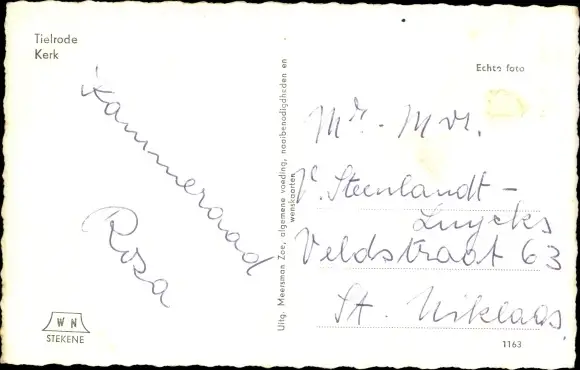 Tielrode
Kerk
Kammeraad
Roza
W N
STEKENE
Uitg. Meersman Zoe, algemene voeding, naaibenodigdheden en
wenskaarten
Echte foto
Mr. - Mvr.
V. Steenlandt -
Luyckx
Veldstraat 63
St. Niklaas.
1163